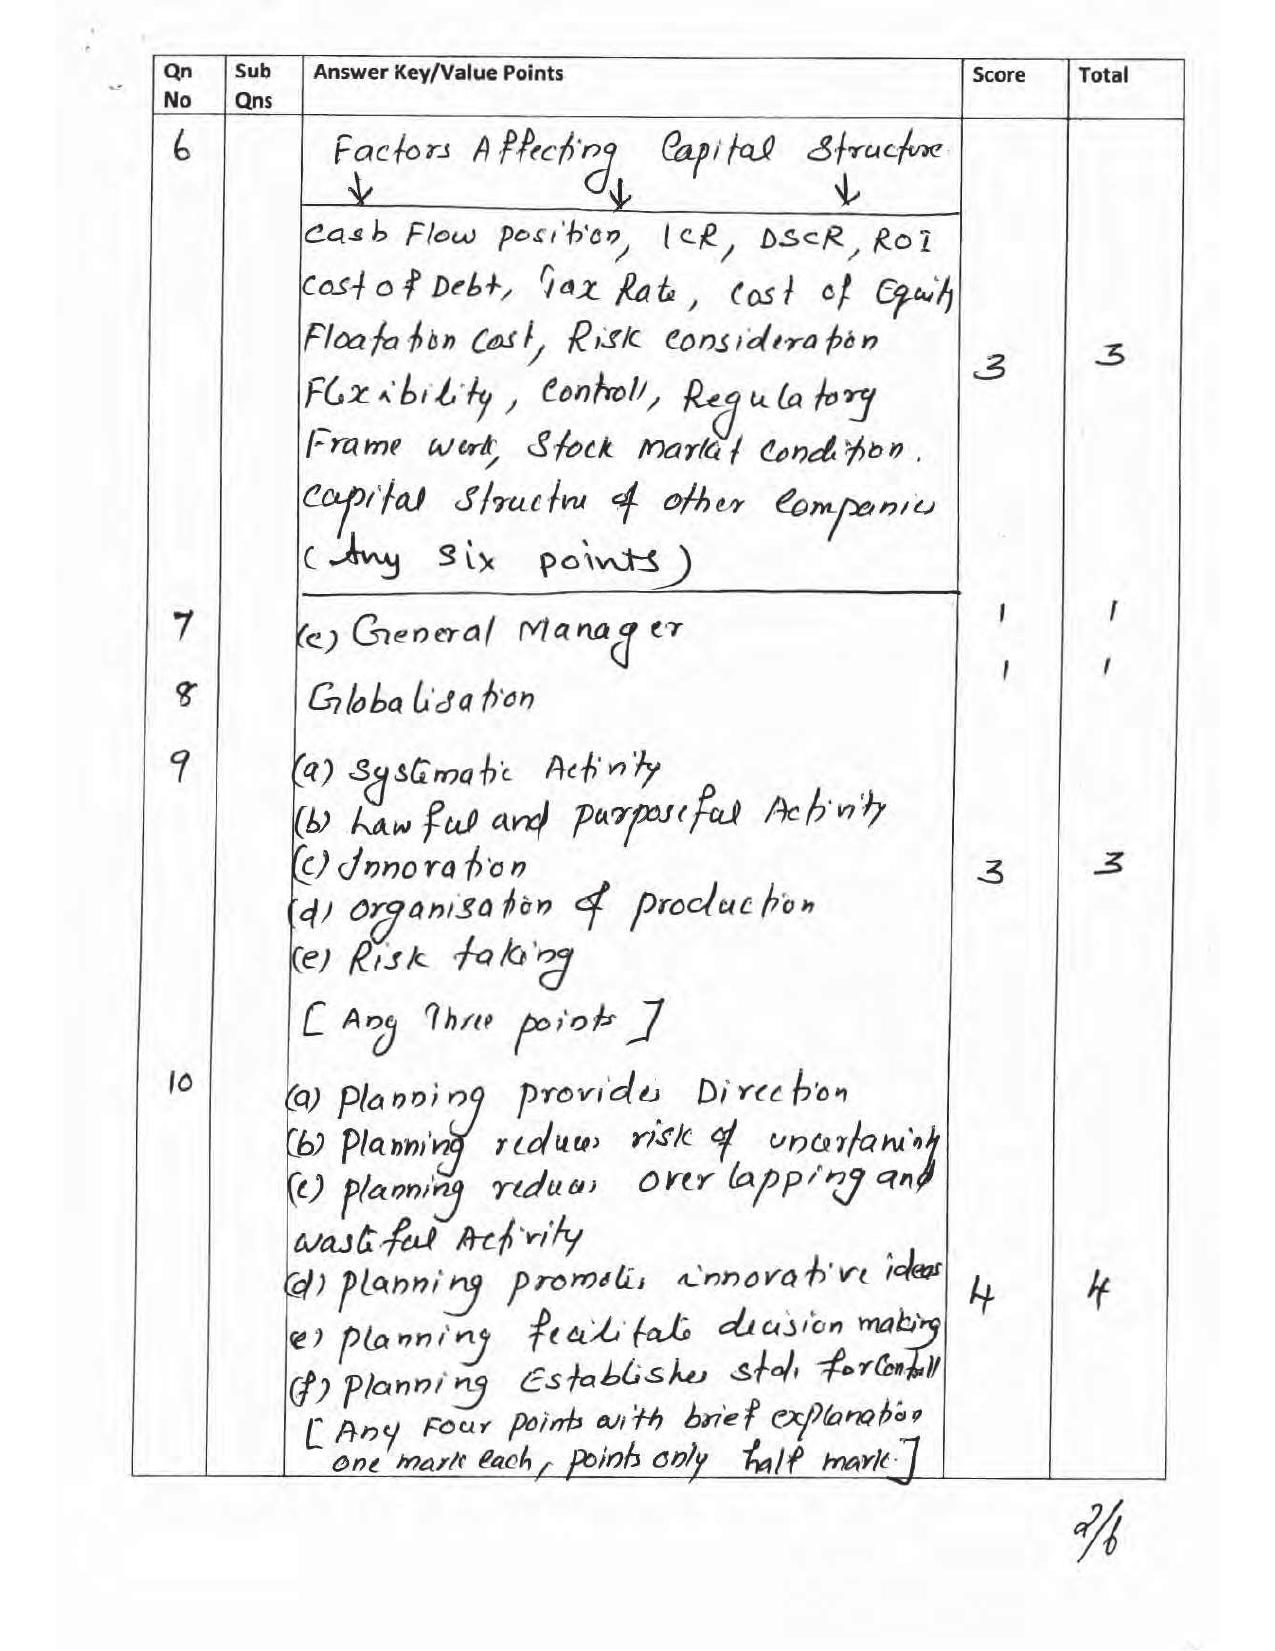 Qn No Sub Qns Answer Key/Value Points Score Total
6 Factors Affecting Capital Structure
Cash Flow position, ICR, DSCR, ROI
Cost of Debt, Tax Rate, Cost of Equity
Floatation Cost, Risk consideration
3 3
Flexibility, Controll, Regulatory
Frame work, Stock Market Condition.
Capital Structure of other Companies
(Any Six points)
7 (c) General Manager 1 1
8 Globalisation 1 1
9 (a) Systematic Activity
(b) Lawful and purposeful Activity
(c) Innovation 3 3
(d) Organisation of production
(e) Risk taking
[ Any Three points ]
10 (a) Planning provides Direction
(b) Planning reduces risk of uncertaninty
(c) planning reduces over lapping and
wasteful Activity
(d) planning promotes innovative ideas 4 4
e) planning fecilitate decision making
(f) planning Establishes stds for Controll
[ Any Four points with brief explanation
one mark each, points only half mark.]
2/6